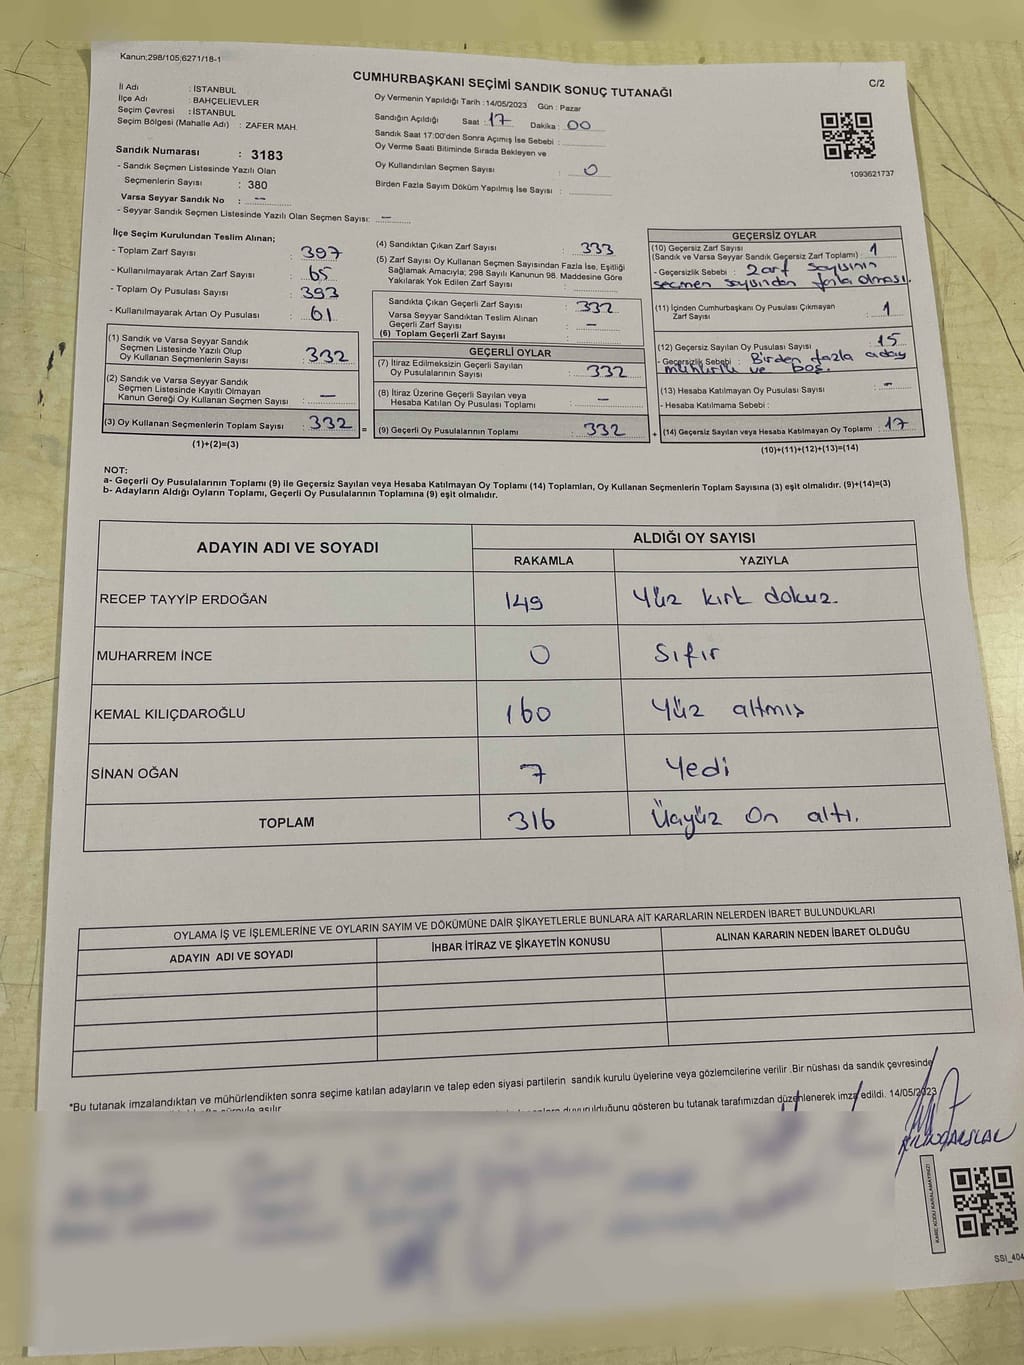 Kanun;298/105;6271/18-1
CUMHURBAŞKANI SEÇİMİ SANDIK SONUÇ TUTANAĞI
C/2
İl Adı : İSTANBUL
İlçe Adı : BAHÇELİEVLER
Seçim Çevresi : İSTANBUL
Seçim Bölgesi (Mahalle Adı) : ZAFER MAH.
Oy Vermenin Yapıldığı Tarih : 14/05/2023 Gün : Pazar
Sandığın Açıldığı Saat : 17 Dakika : 00
Sandık Saat 17:00'den Sonra Açımış İse Sebebi :
Oy Verme Saati Bitiminde Sırada Bekleyen ve
Oy Kullandırılan Seçmen Sayısı : 0
Birden Fazla Sayım Döküm Yapılmış İse Sayısı :
1093621737
Sandık Numarası : 3183
- Sandık Seçmen Listesinde Yazılı Olan
Seçmenlerin Sayısı : 380
Varsa Seyyar Sandık No : --
- Seyyar Sandık Seçmen Listesinde Yazılı Olan Seçmen Sayısı: –
İlçe Seçim Kurulundan Teslim Alınan;
- Toplam Zarf Sayısı : 397
- Kullanılmayarak Artan Zarf Sayısı : 65
- Toplam Oy Pusulası Sayısı : 393
- Kullanılmayarak Artan Oy Pusulası : 61
(1) Sandık ve Varsa Seyyar Sandık
Seçmen Listesinde Yazılı Olup
Oy Kullanan Seçmenlerin Sayısı : 332
(2) Sandık ve Varsa Seyyar Sandık
Seçmen Listesinde Kayıtlı Olmayan
Kanun Gereği Oy Kullanan Seçmen Sayısı : –
(3) Oy Kullanan Seçmenlerin Toplam Sayısı : 332 =
(1)+(2)=(3)
(4) Sandıktan Çıkan Zarf Sayısı : 333
(5) Zarf Sayısı Oy Kullanan Seçmen Sayısından Fazla İse, Eşitliği
Sağlamak Amacıyla; 298 Sayılı Kanunun 98. Maddesine Göre
Yakılarak Yok Edilen Zarf Sayısı :
Sandıkta Çıkan Geçerli Zarf Sayısı : 332
Varsa Seyyar Sandıktan Teslim Alınan
Geçerli Zarf Sayısı : –
(6) Toplam Geçerli Zarf Sayısı :
GEÇERLİ OYLAR
(7) İtiraz Edilmeksizin Geçerli Sayılan
Oy Pusulalarının Sayısı : 332
(8) İtiraz Üzerine Geçerli Sayılan veya
Hesaba Katılan Oy Pusulası Toplamı : –
(9) Geçerli Oy Pusulalarının Toplamı : 332 +
GEÇERSİZ OYLAR
(10) Geçersiz Zarf Sayısı
(Sandık ve Varsa Seyyar Sandık Geçersiz Zarf Toplamı) : 1
- Geçersizlik Sebebi : Zarf sayısının
seçmen sayısından fazla olması.
(11) İçinden Cumhurbaşkanı Oy Pusulası Çıkmayan
Zarf Sayısı : 1
(12) Geçersiz Sayılan Oy Pusulası Sayısı : 15
- Geçersizlik Sebebi : Birden fazla aday
mühürlü ve boş.
(13) Hesaba Katılmayan Oy Pusulası Sayısı : –
- Hesaba Katılmama Sebebi :
(14) Geçersiz Sayılan veya Hesaba Katılmayan Oy Toplamı : 17
(10)+(11)+(12)+(13)=(14)
NOT:
a- Geçerli Oy Pusulalarının Toplamı (9) ile Geçersiz Sayılan veya Hesaba Katılmayan Oy Toplamı (14) Toplamları, Oy Kullanan Seçmenlerin Toplam Sayısına (3) eşit olmalıdır. (9)+(14)=(3)
b- Adayların Aldığı Oyların Toplamı, Geçerli Oy Pusulalarının Toplamına (9) eşit olmalıdır.
ADAYIN ADI VE SOYADI ALDIĞI OY SAYISI
RAKAMLA YAZIYLA
RECEP TAYYİP ERDOĞAN 149 Yüz kırk dokuz.
MUHARREM İNCE 0 Sıfır
KEMAL KILIÇDAROĞLU 160 Yüz altmış
SİNAN OĞAN 7 Yedi
TOPLAM 316 Üçyüz On altı.
OYLAMA İŞ VE İŞLEMLERİNE VE OYLARIN SAYIM VE DÖKÜMÜNE DAİR ŞİKAYETLERLE BUNLARA AİT KARARLARIN NELERDEN İBARET BULUNDUKLARI
ADAYIN ADI VE SOYADI İHBAR İTİRAZ VE ŞİKAYETİN KONUSU ALINAN KARARIN NEDEN İBARET OLDUĞU
*Bu tutanak imzalandıktan ve mühürlendikten sonra seçime katılan adayların ve talep eden siyasi partilerin sandık kurulu üyelerine veya gözlemcilerine verilir .Bir nüshası da sandık çevresinde
duyurulduğunu gösteren bu tutanak tarafımızdan düzenlenerek imza edildi. 14/05/2023
KARE KODU KARALAMAYINIZ!
SSİ_404